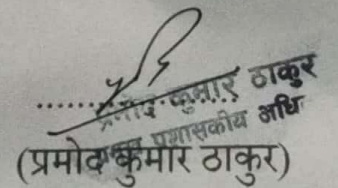 प्रमोद कुमार ठाकुर
प्रशासकीय अधि
(प्रमोद कुमार ठाकुर)